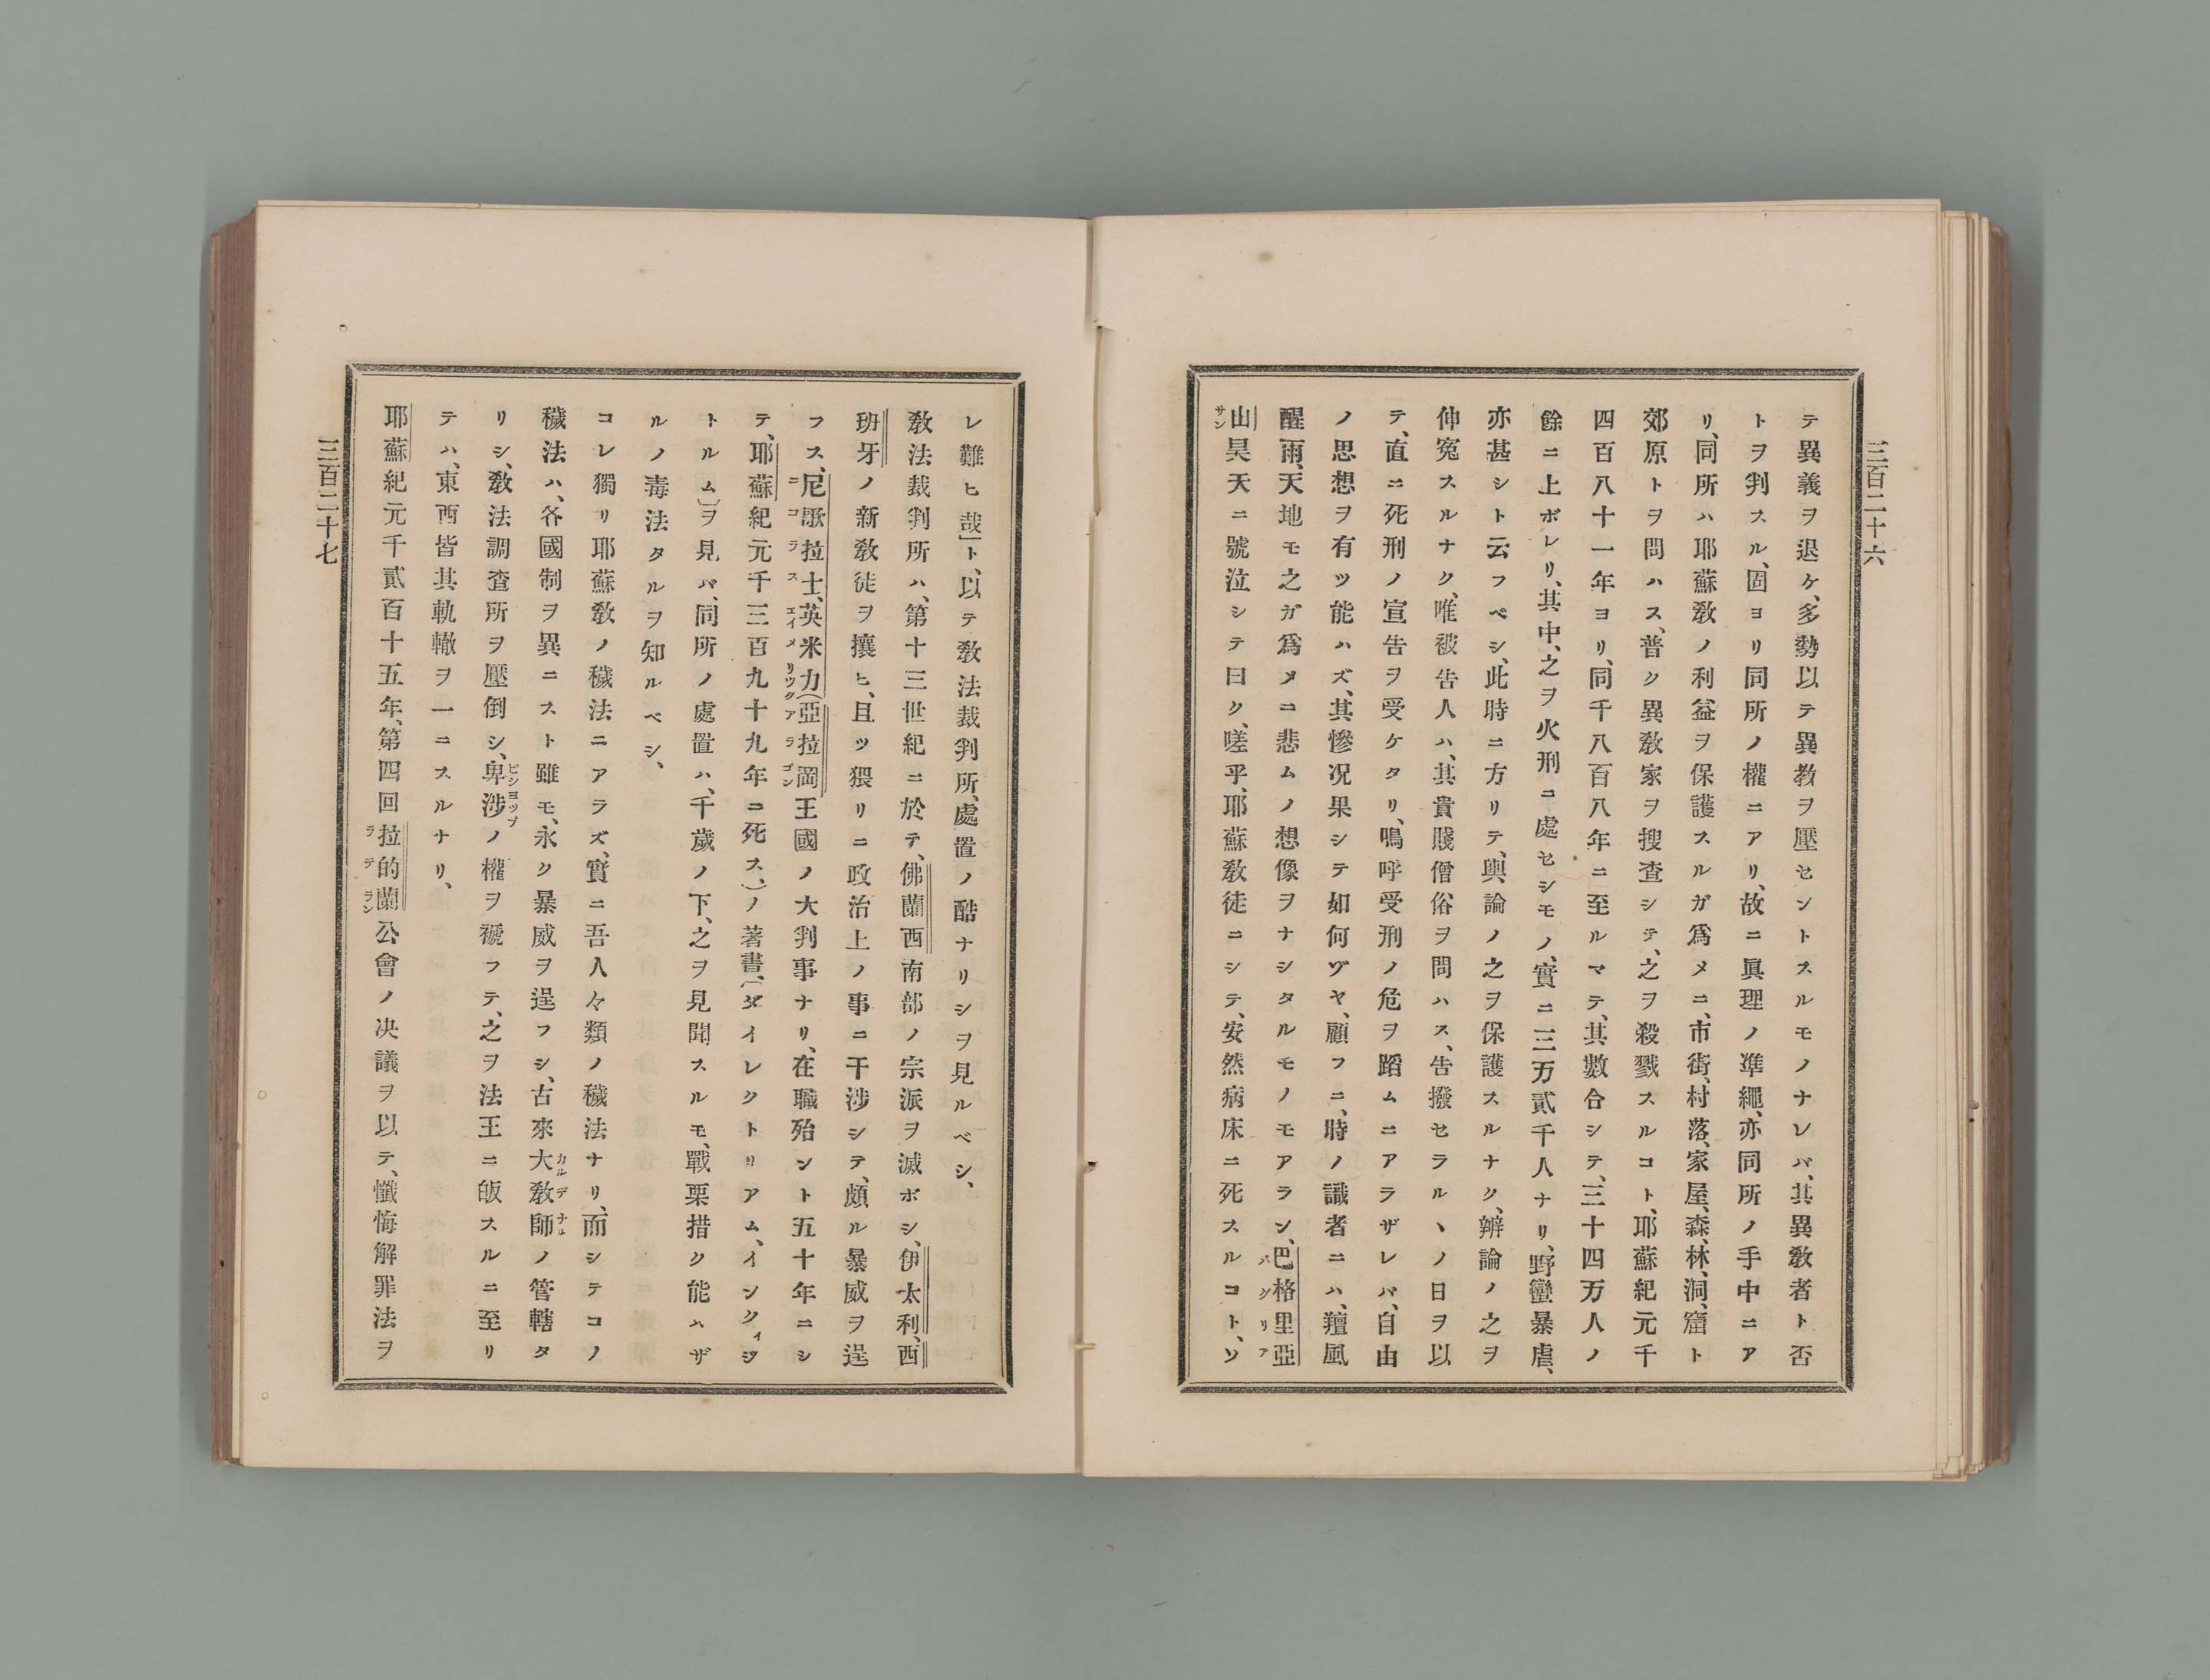 三百二十六
テ異義ヲ退ケ、多勢以テ異教ヲ壓セントスルモノナレバ、其異敎者ト否
トヲ判スル、固ヨリ同所ノ權ニアリ、故ニ眞理ノ凖繩、亦同所ノ手中ニア
リ、同所ハ耶蘇敎ノ利益ヲ保護スルガ爲メニ、市街、村落、家屋、森、林、洞、窟ト
郊原トヲ問ハス、普ク異敎家ヲ搜査シテ、之ヲ殺戮スルコト、耶蘇紀元千
四百八十一年ヨリ、同千八百八年ニ至ルマテ、其數合シテ、三十四万人ノ
餘ニ上ボレリ、其中、之ヲ火刑ニ處セシモノ、實ニ三万貳千人ナリ、野蠻暴虐、
亦甚シト云フベシ、此時ニ方リテ、輿論ノ之ヲ保護スルナク、辨論ノ之ヲ
伸寃スルナク、唯被告人ハ、其貴賤僧俗ヲ問ハス、告撥セラルヽノ日ヲ以
テ、直ニ死刑ノ宣告ヲ受ケタリ、嗚呼受刑ノ危ヲ蹈ムニアラザレバ、自由
ノ思想ヲ有ツ能ハズ、其慘况果シテ如何ゾヤ、顧フニ、時ノ識者ニハ、羶風
醒雨、天地モ之ガ爲メニ悲ムノ想像ヲナシタルモノモアラン、巴格里亞
山昊天ニ號泣シテ曰ク、嗟乎、耶蘇敎徒ニシテ、安然病床ニ死スルコト、ソ
三百二十七
レ難ヒ哉」ト、以テ敎法裁判所、處置ノ酷ナリシヲ見ルベシ、
敎法裁判所ハ、第十三世紀ニ於テ、佛蘭西南部ノ宗派ヲ滅ボシ、伊太利、西
班牙ノ新敎徒ヲ攘ヒ、且ツ猥リニ政治上ノ事ニ干渉シテ、頗ル暴威ヲ逞
フス、尼歌拉士、英米力(亞拉岡王國ノ大判事ナリ、在職殆ント五十年ニシ
テ、耶蘇紀元千三百九十九年ニ死ス、)ノ著書、(ダイレクトリアム、インクィジ
トルム)ヲ見バ、同所ノ處置ハ、千歲ノ下、之ヲ見聞スルモ、戰栗措ク能ハザ
ルノ毒法タルヲ知ルベシ、
コレ獨リ耶蘇敎ノ穢法ニアラズ、實ニ吾人々類ノ穢法ナリ、而シテコノ
穢法ハ、各國制ヲ異ニスト雖モ、永ク暴威ヲ逞フシ、古來大敎師ノ管轄タ
リシ、敎法調査所ヲ壓倒シ、卑渉ノ權ヲ褫フテ、之ヲ法王ニ皈スルニ至リ
テハ、東西皆其軌轍ヲ一ニスルナリ、
耶蘇紀元千貳百十五年、第四回拉的蘭公會ノ決議ヲ以テ、懺悔解罪法ヲ